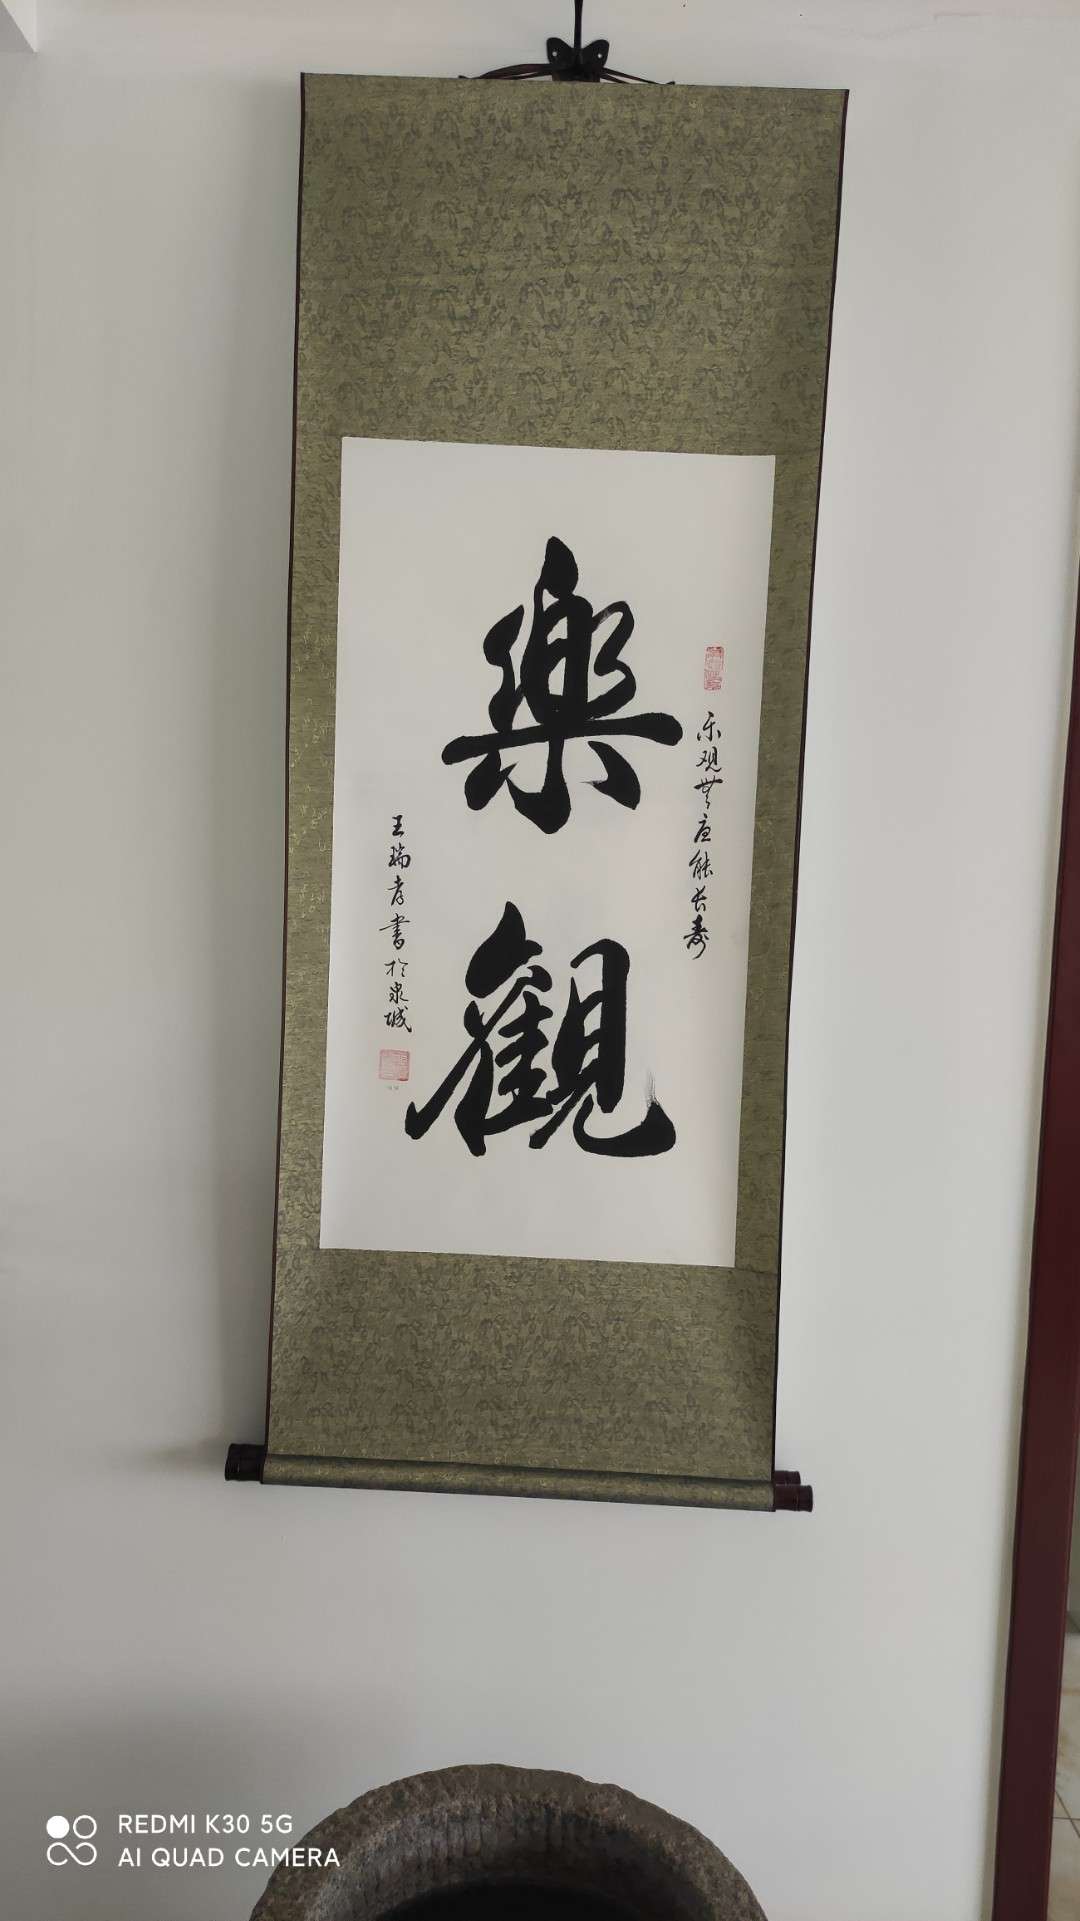 樂觀
乐观無虑能长寿
王瑞孝書於泉城
REDMI K30 5G
AI QUAD CAMERA